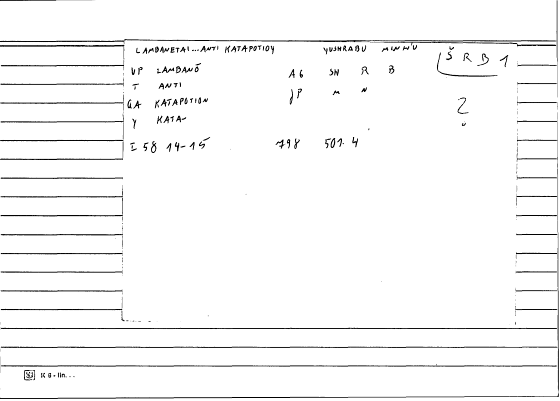 LAMBANETAI...ANTI KATAPOTIOY YUSHRABU MINHU ŠRB1
VP LAMBANŌ AG SH R B
T ANTI JP M N
QA KATAPOTION 2
Y KATA-
I 58 14-15 798 501.4
K 6 - lin...